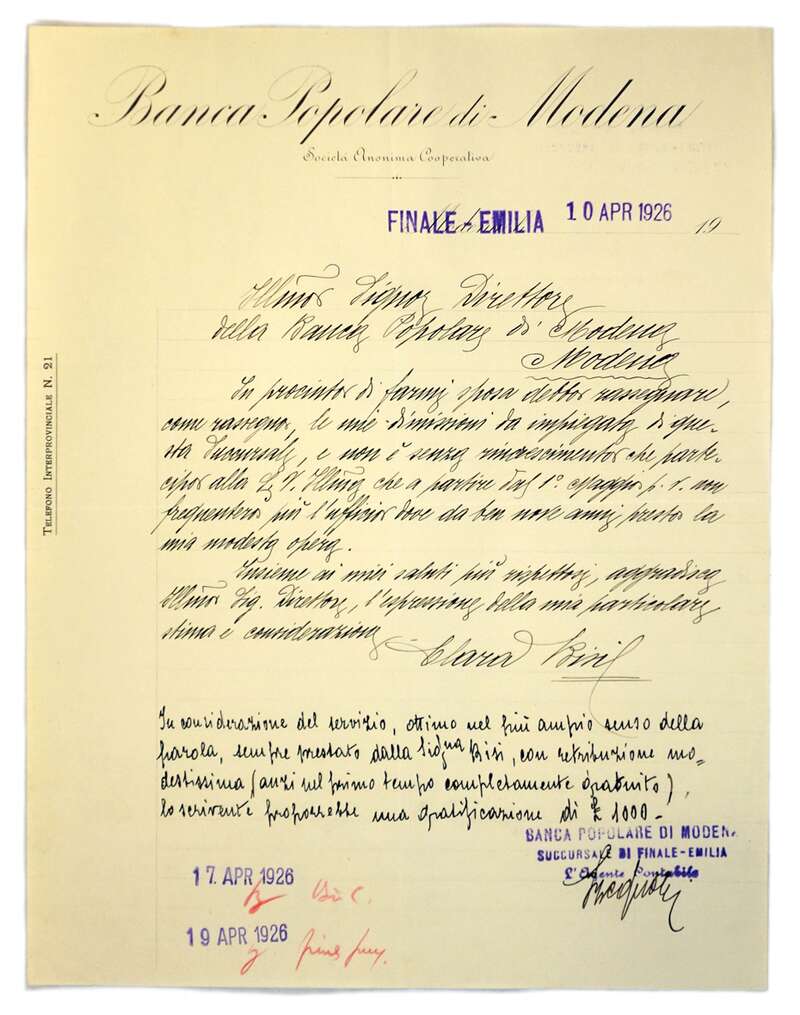 Banca Popolare di Modena
Società Anonima Cooperativa
FINALE-EMILIA 10 APR 1926 19
TELEFONO INTERPROVINCIALE N. 21
Illmo Signor Direttore
della Banca Popolare di Modena
Modena
In procinto di farmi sposa debbo rassegnare,
come rassegno, le mie dimissioni da impiegata di que-
sta Succursale, e non è senza rincrescimento che parte-
cipo alla S. V. Illma che a partire dal 1º Maggio p. v. non
frequenterò più l'ufficio dove da ben nove anni presto la
mia modesta opera.
Insieme ai miei saluti più rispettosi, aggradisca
Illmo Sig. Direttore, l'espressione della mia particolare
stima e considerazione
Clara Bisi
In considerazione del servizio, ottimo nel più ampio senso della
parola, sempre prestato dalla Signa Bisi, con retribuzione mo=
destissima (anzi nel primo tempo completamente gratuito),
lo scrivente proporrebbe una gratificazione di £ 1000-
BANCA POPOLARE DI MODENA
SUCCURSALE DI FINALE-EMILIA
L'Agente Contabile
17 APR 1926
19 APR 1926